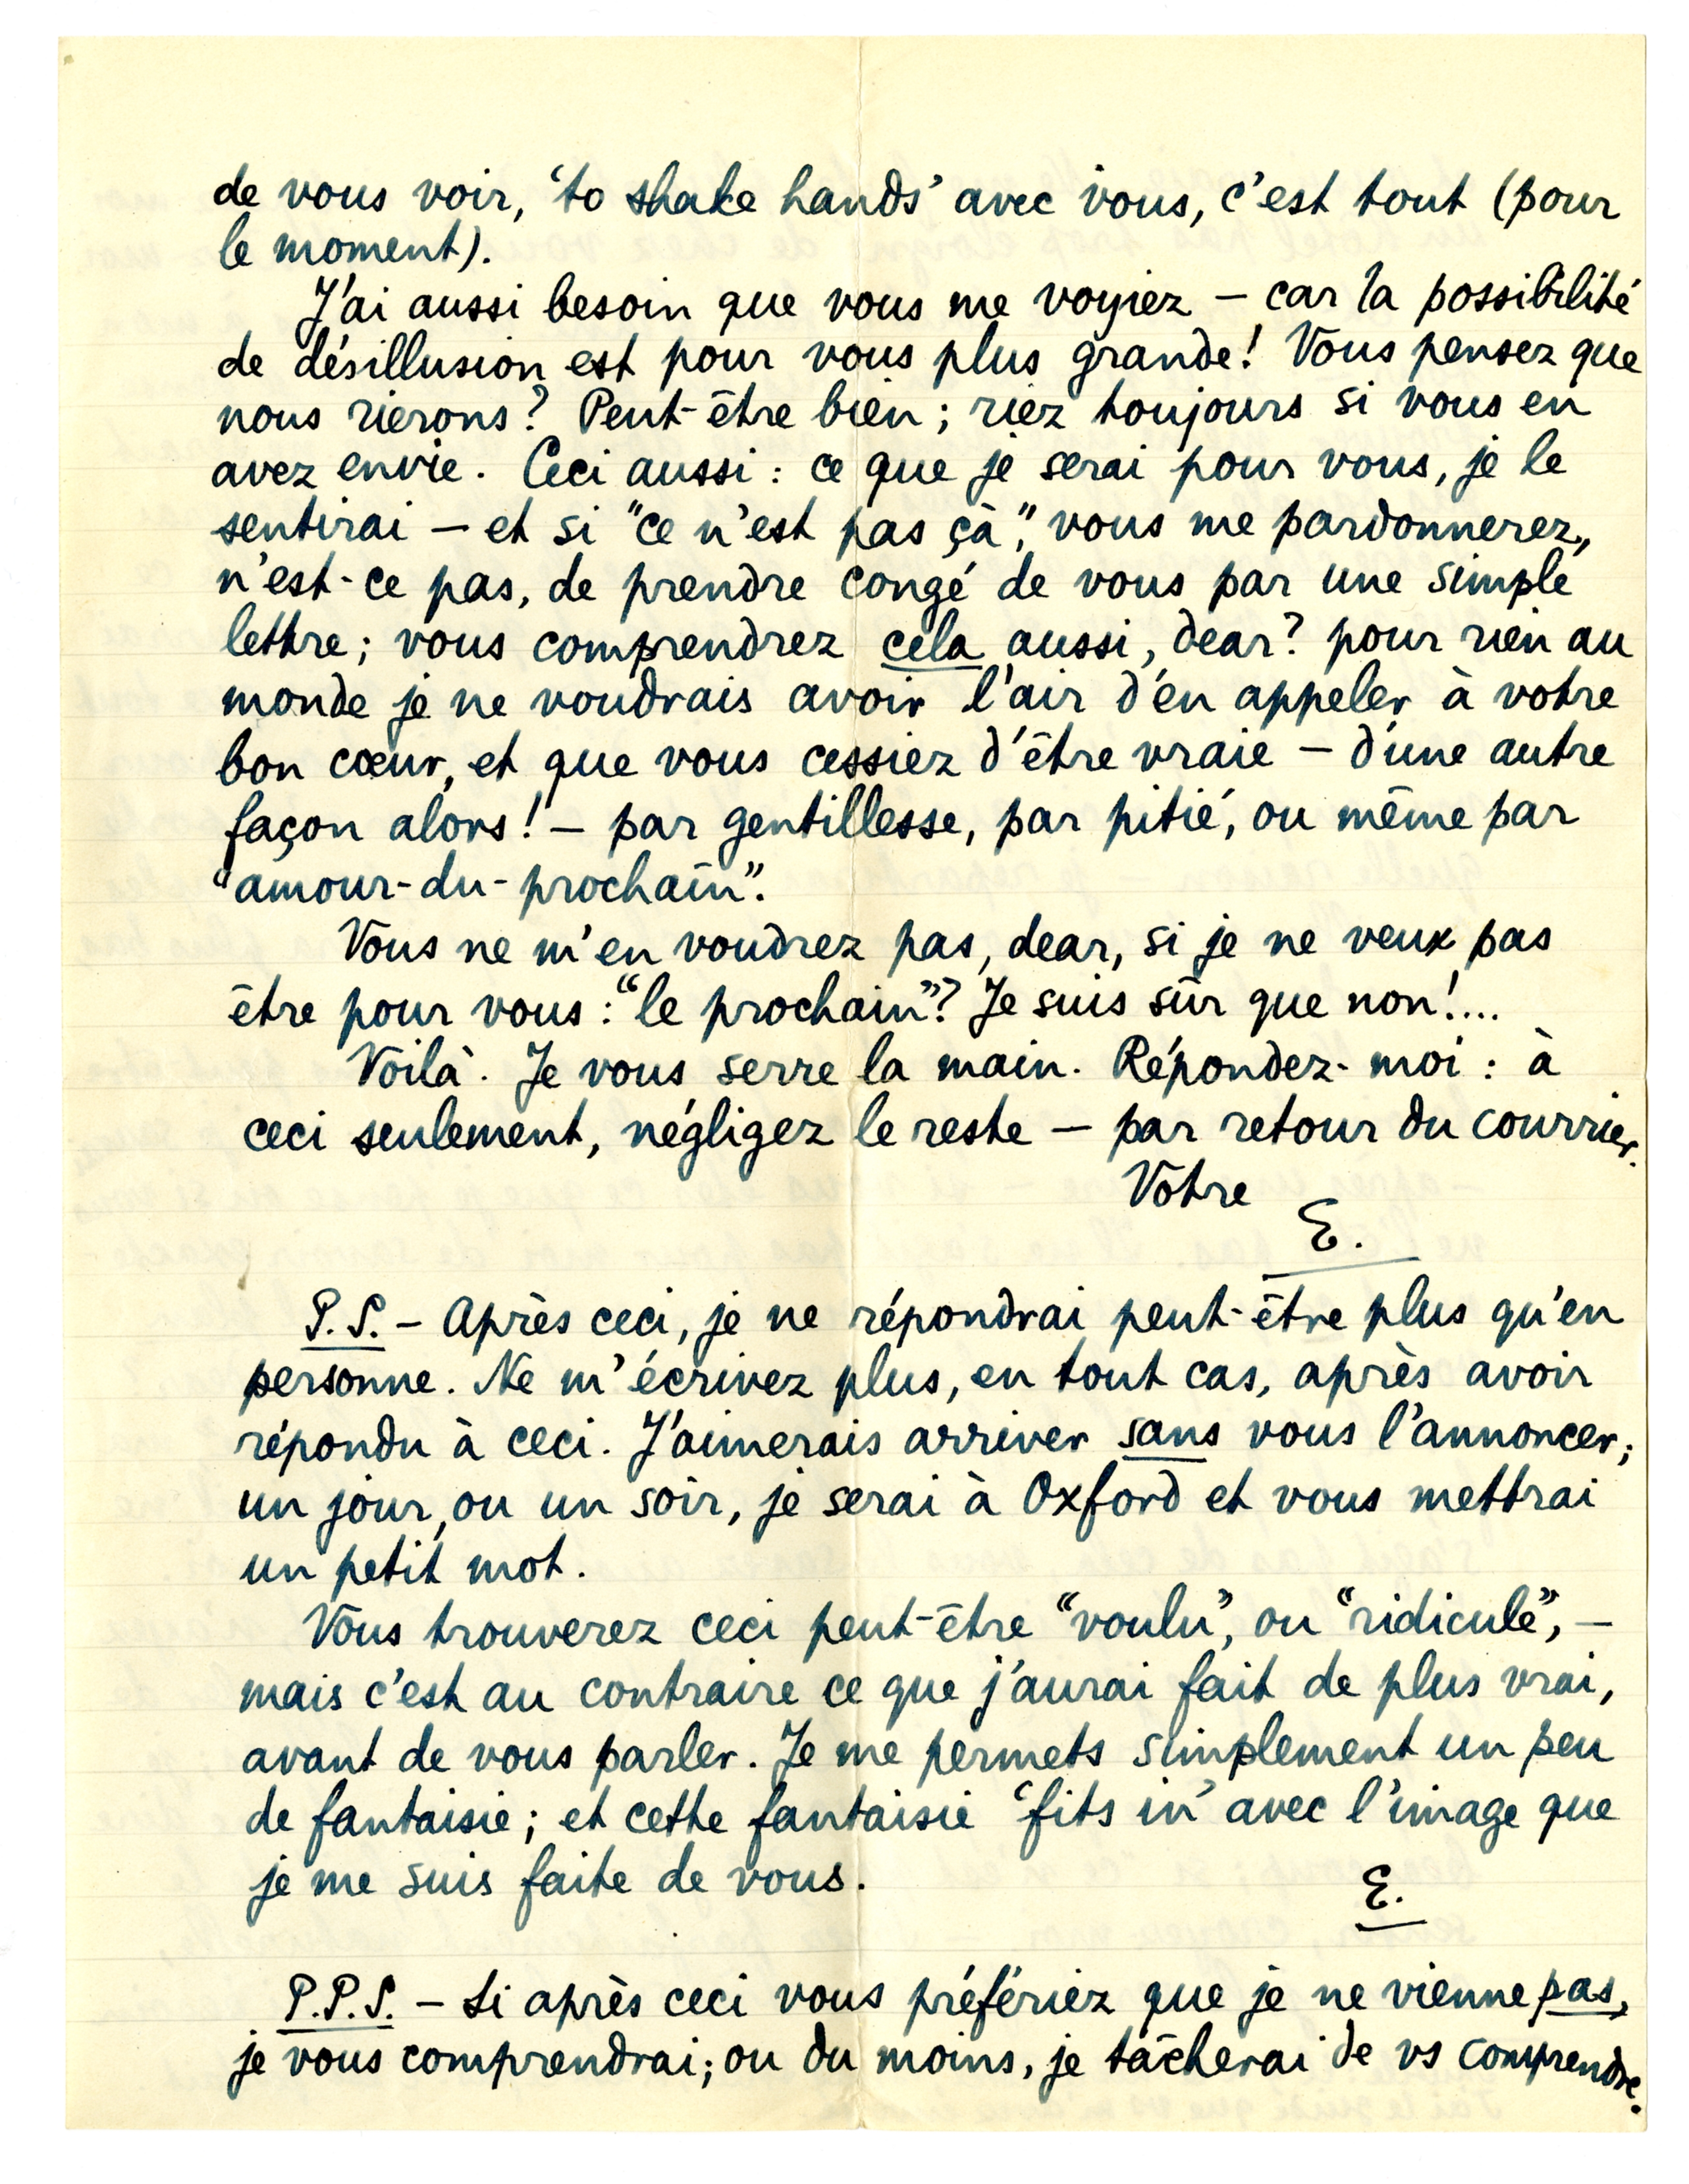 de vous voir, 'to shake hands' avec vous, c'est tout (pour
le moment).
J'ai aussi besoin que vous me voyiez — car la possibilité
de désillusion est pour vous plus grande! Vous pensez que
nous rierons? Peut-être bien; riez toujours si vous en
avez envie. Ceci aussi: ce que je serai pour vous, je le
sentirai — et si "ce n'est pas çà", vous me pardonnerez,
n'est-ce pas, de prendre congé de vous par une simple
lettre; vous comprendrez cela aussi, dear? pour rien au
monde je ne voudrais avoir l'air d'en appeler à votre
bon cœur, et que vous cessiez d'être vraie — d'une autre
façon alors! — par gentillesse, par pitié, ou même par
"amour-du-prochain".
Vous ne m'en voudrez pas, dear, si je ne veux pas
être pour vous: "le prochain"? Je suis sûr que non!...
Voilà. Je vous serre la main. Répondez-moi: à
ceci seulement, négligez le reste — par retour du courrier.
Votre
E.
P.S. — Après ceci, je ne répondrai peut-être plus qu'en
personne. Ne m'écrivez plus, en tout cas, après avoir
répondu à ceci. J'aimerais arriver sans vous l'annoncer;
un jour, ou un soir, je serai à Oxford et vous mettrai
un petit mot.
Vous trouverez ceci peut-être "voulu", ou "ridicule", —
mais c'est au contraire ce que j'aurai fait de plus vrai,
avant de vous parler. Je me permets simplement un peu
de fantaisie; et cette fantaisie 'fits in' avec l'image que
je me suis faite de vous.
E.
P.P.S. — Si après ceci vous préfériez que je ne vienne pas,
je vous comprendrai; ou du moins, je tâcherai de vs comprendre.